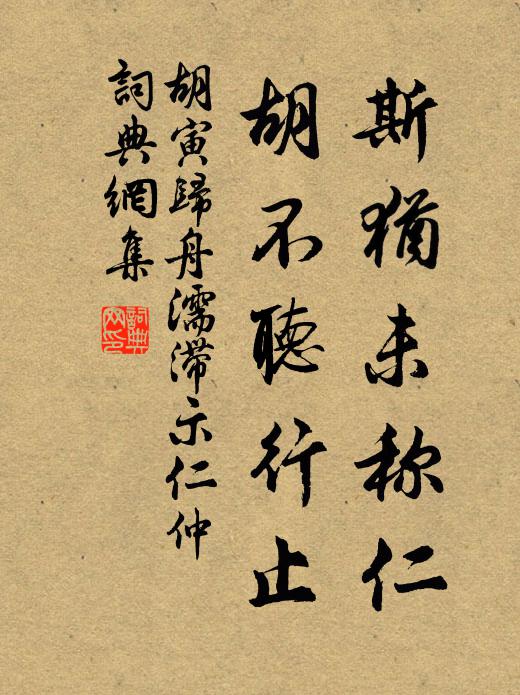 斯猶未称仁
胡不聴行止
胡寅歸舟濡滞示仁仲
詞典網集
詞典网印